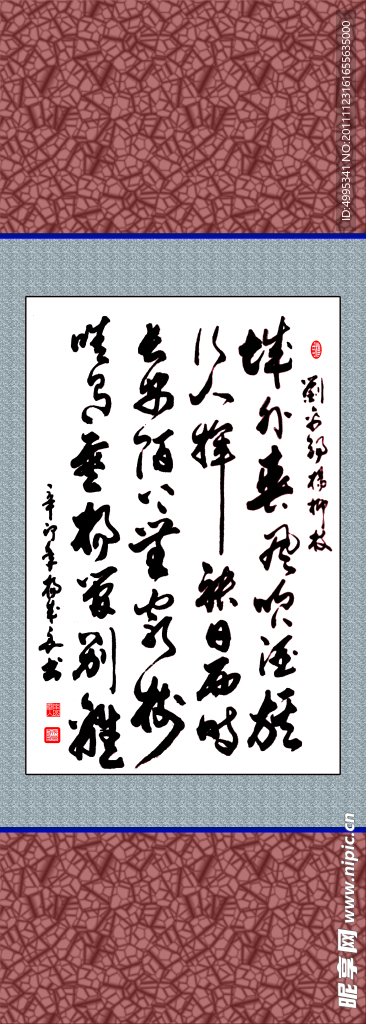 劉禹錫楊柳枝
城外春風吹酒旗
行人揮袂日西時
長安陌上無窮樹
唯有垂楊管別離
辛卯年楊成书
ID:4995341 NO:20111123161655635000
昵享网 www.nipic.cn